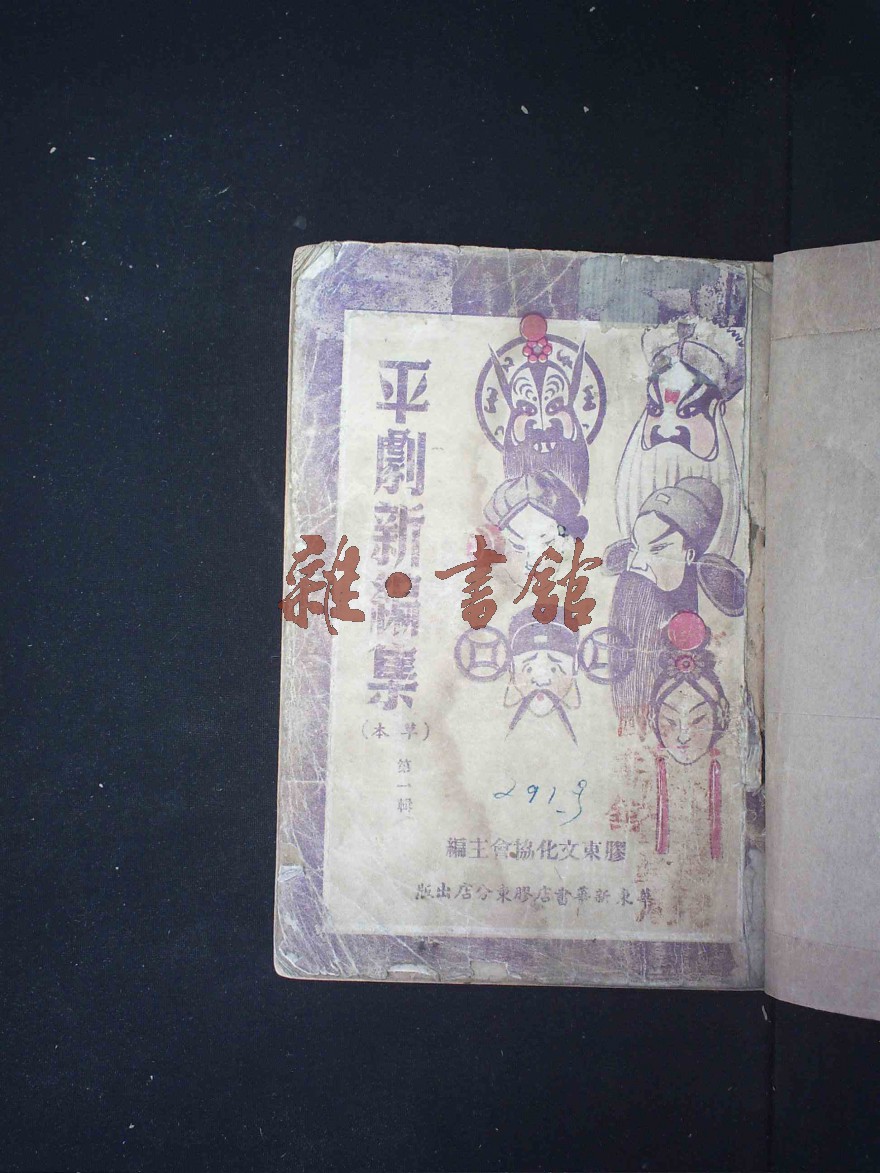 平劇新編集
（草本）
第一輯
膠東文化協會主編
華東新華書店膠東分店出版
291.9
雜·書舘